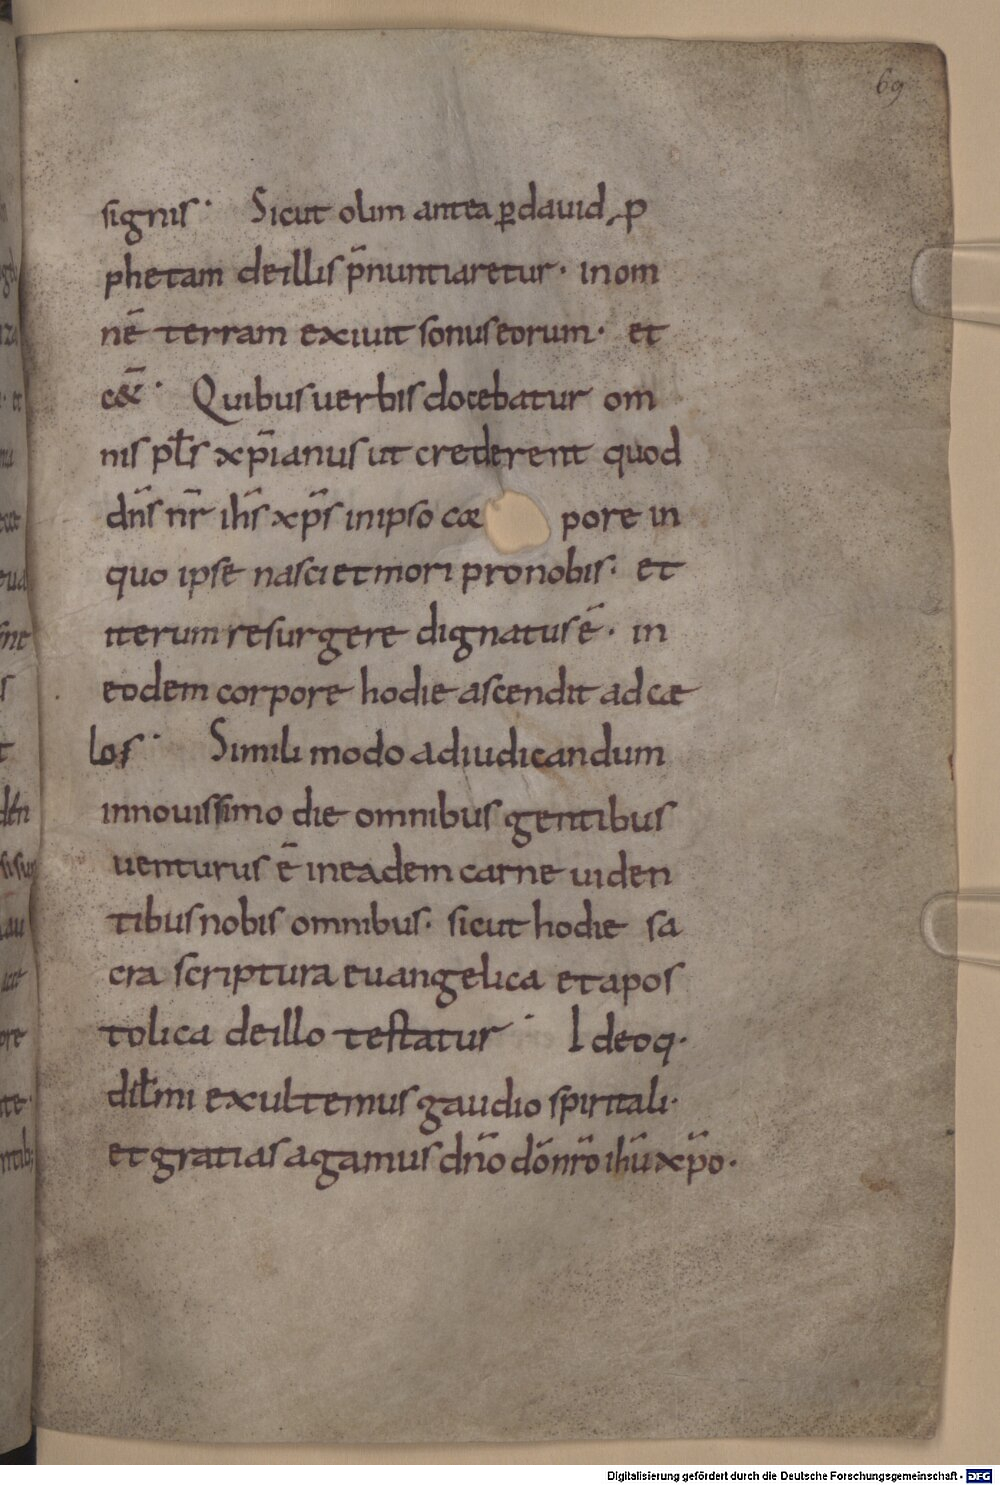 69
signis· Sicut olim antea ꝑdauid ,p
phetam deillis p̄nuntiaretur· inom
nē terram exiuit sonuseorum· et
c&̄· Quibusuerbis docebatur om
nis pl̄s xp̄ianus ut crederent quod
dn̄s nr̄ ihs̄ xp̄s inipso cæ pore in
quo ipse nasci etmori pronobis· et
iterum resurgere dignatus ē· in
eodem corpore hodie ascendit ad cæ
los· Simili modo adiudicandum
innouissimo die omnibus gentibus
uenturus ē ineadem carne uiden
tibus nobis omnibus· sicut hodie sa
cra scriptura euangelica et apos
tolica deillo testatur· Ideoq·
dil̄mi exultemus gaudio spiritali·
et gratias agamus dn̄o dō nr̄o ihū xp̄o·
Digitalisierung gefördert durch die Deutsche Forschungsgemeinschaft - DFG